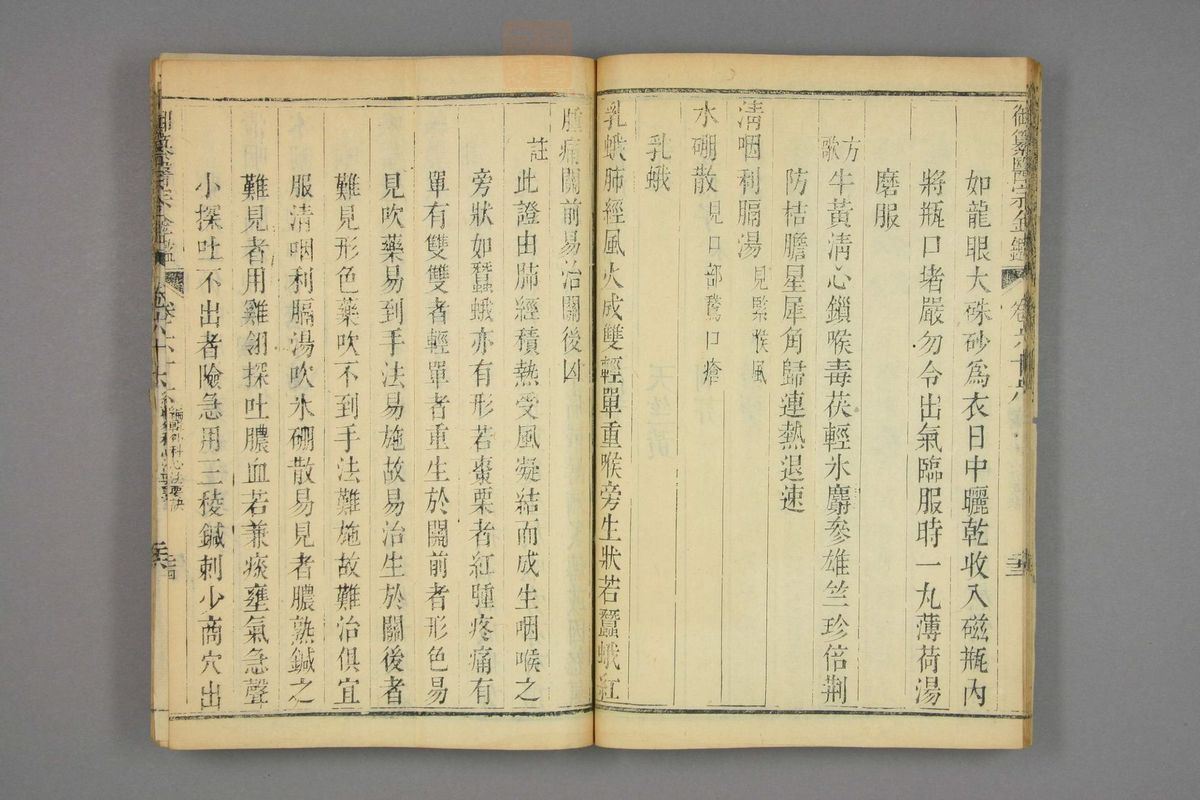 御纂醫宗金鑑 卷六十六
如龍眼大硃砂為衣日中曬乾收入磁瓶內
將瓶口堵嚴勿令出氣臨服時一丸薄荷湯
磨服
方歌 牛黃清心鎖喉毒茯輕氷麝參雄竺珍倍荆
防桔膽星犀角歸連熱退速
清咽利膈湯 見緊喉風
水硼散 見口部鵞口瘡
乳蛾
乳蛾肺經風火成雙輕單重喉旁生狀若蠶蛾紅
腫痛關前易治關後凶
註 此證由肺經積熱受風凝結而成生咽喉之
旁狀如蠶蛾亦有形若棗栗者紅腫疼痛有
單有雙雙者輕單者重生於關前者形色易
見吹藥易到手法易施故易治生於關後者
難見形色藥吹不到手法難施故難治俱宜
服清咽利膈湯吹氷硼散易見者膿熟鍼之
難見者用雞翎探吐膿血若兼痰壅氣急聲
小探吐不出者險急用三稜鍼刺少商穴出
御纂醫宗金鑑 卷六十六